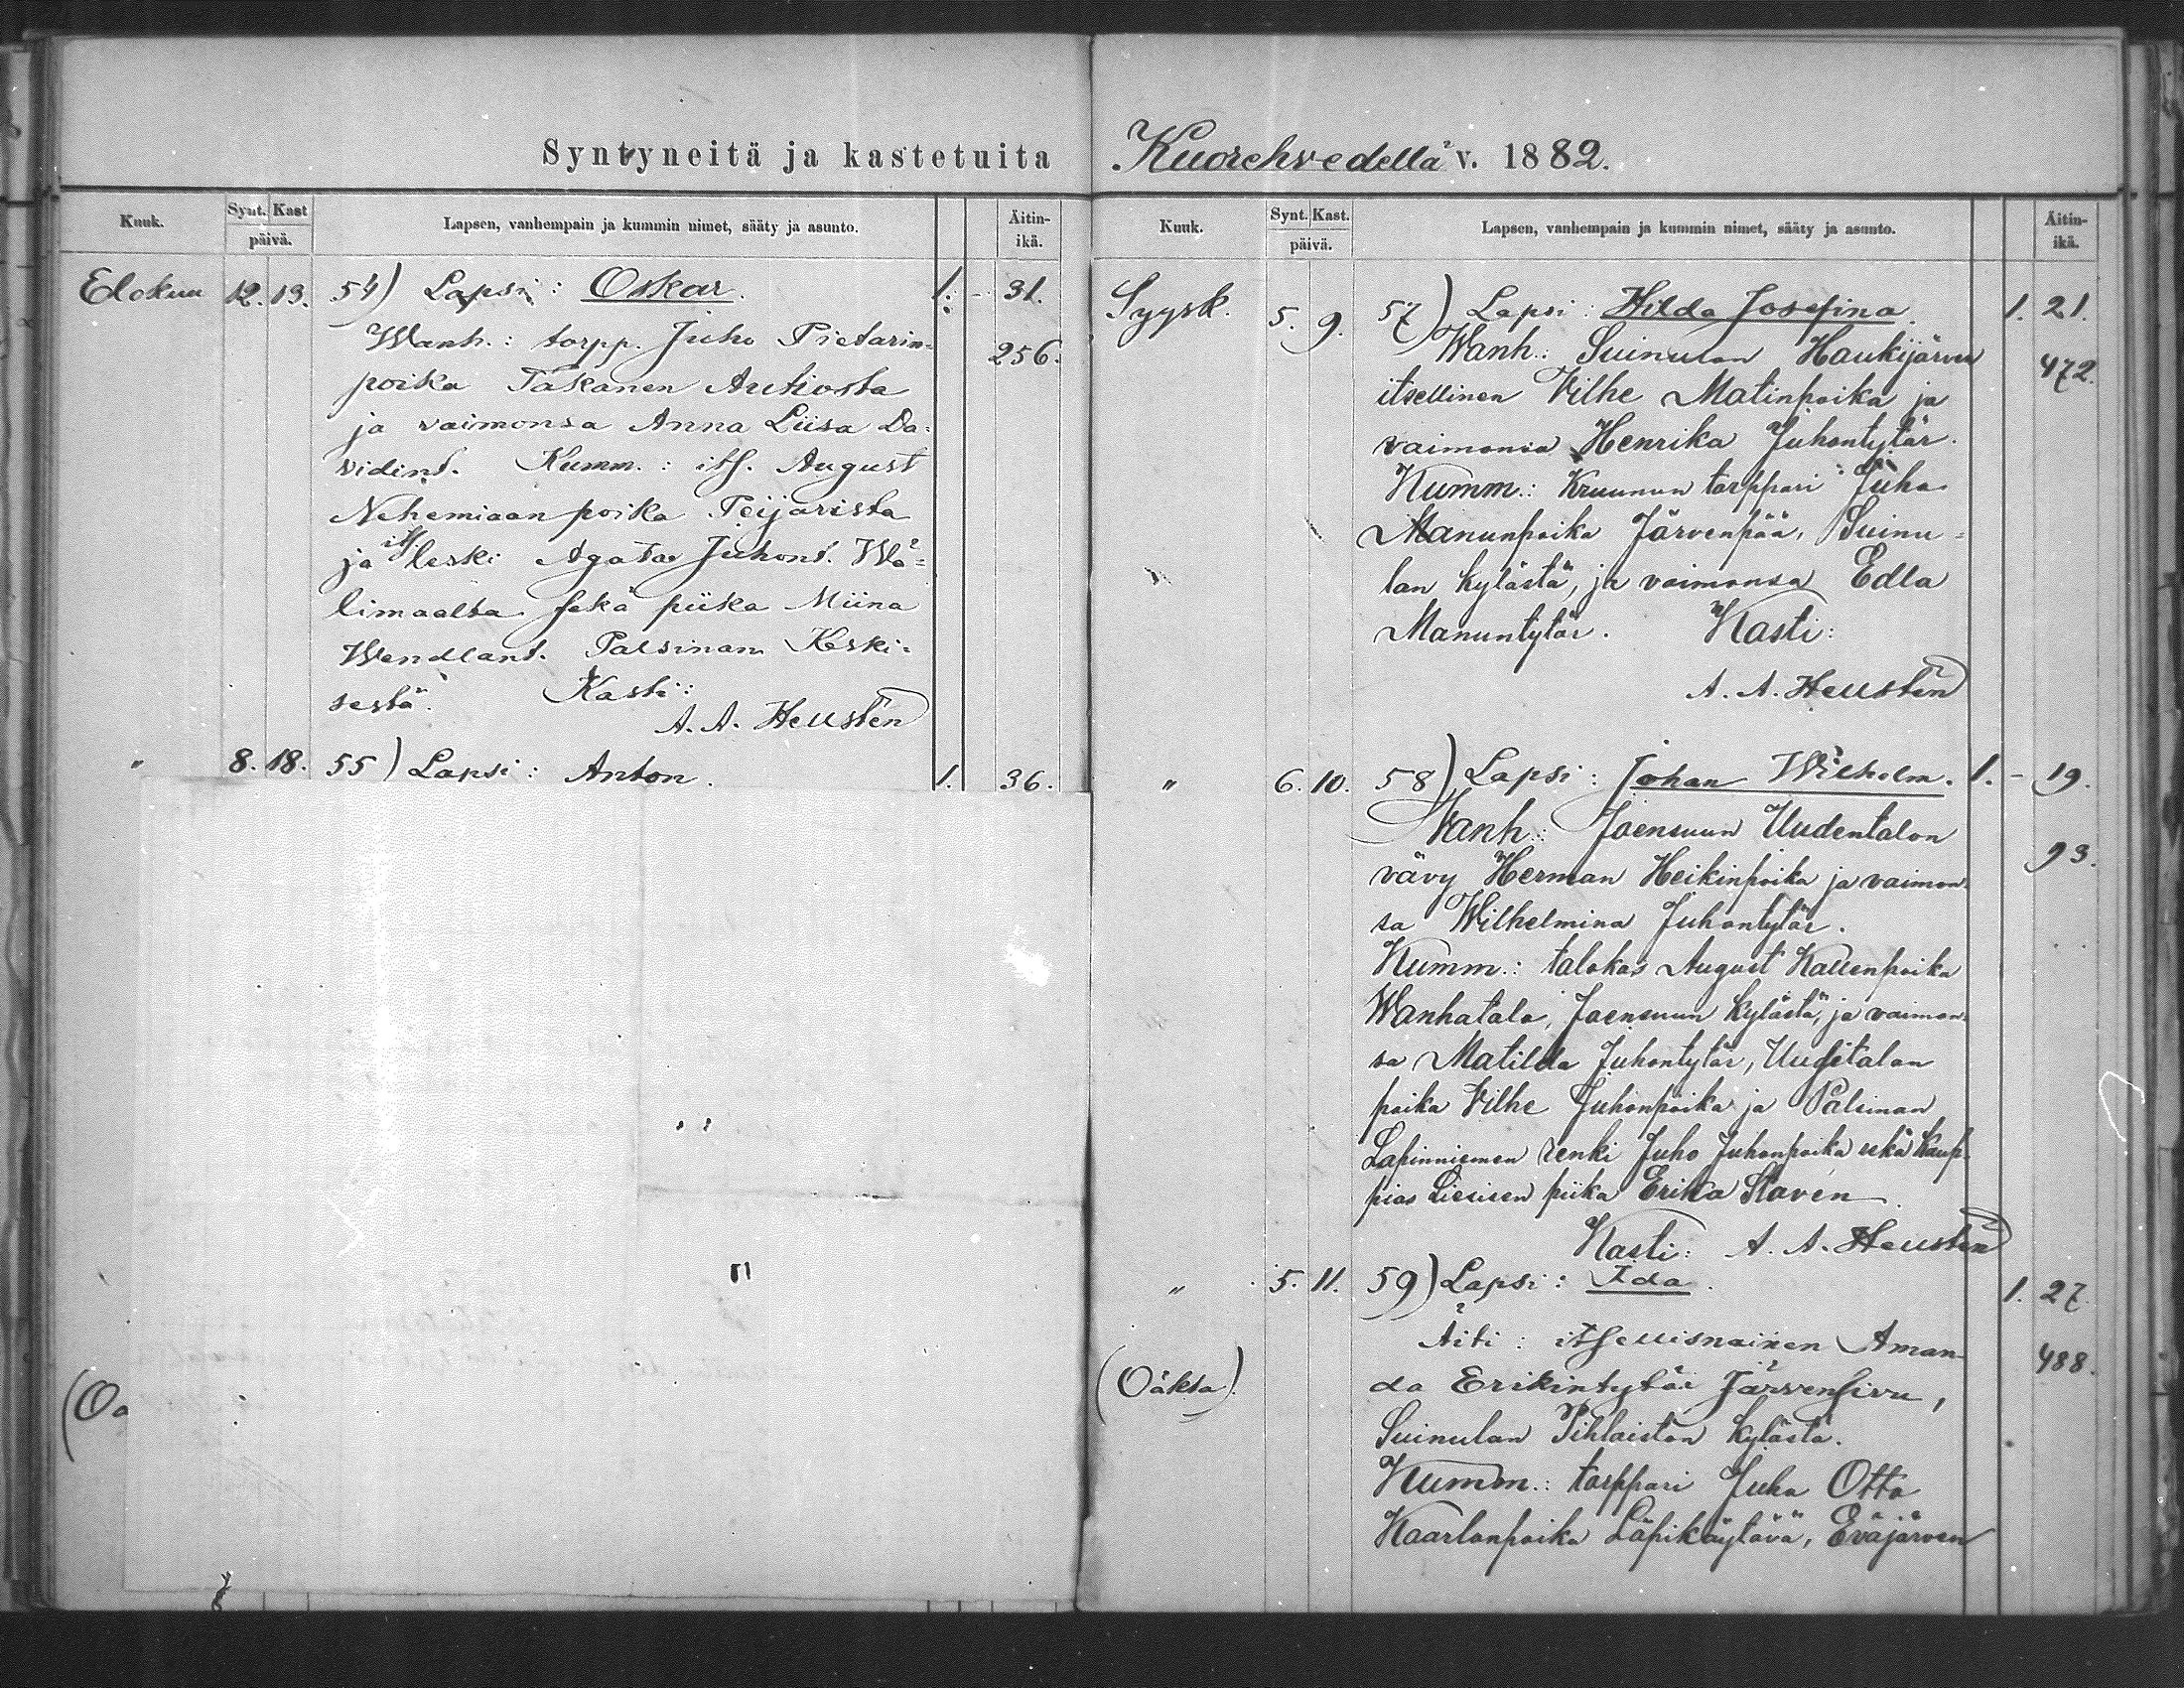 Syntyneitä ja kastetuita
Kuuk. Synt. Kast päivä. Lapsen, vanhempain ja kummin nimet, sääty ja asunto. Äitin-ikä.
Elokuu 12. 13. 54) Lapsi: Oskar. 1. - 31.
Wanh.: torpp. Juho Pietarin=
256.
poika Takanen Autiosta
ja vaimonsa Anna Liisa Da=
vidint. Kumm.: its. August
Nehemiaanpoika Teijarista
ja its leski Agata Juhont. Wä=
limaalta sekä piika Miina
Wendlant. Palsinan Keski=
sestä. Kasti:
A. A. Heustén
" 8. 18. 55) Lapsi: Anton. 1. 36.
(Oa
Kuorehvedellä v. 1882.
Kuuk. Synt. Kast. päivä. Lapsen, vanhempain ja kummin nimet, sääty ja asunto. Äitin-ikä.
Syysk. 5. 9. 57) Lapsi: Hilda Josefina. 1. 21.
Wanh.: Suinulan Haukijärven
472.
itsellinen Vilhe Matinpoika ja
vaimonsa Henrika Juhontytär.
Kumm.: Kruunun torppari Juha
Manunpoika Järvenpää, Suinu=
lan kylästä, ja vaimonsa Edla
Manuntytär. Kasti:
A. A. Heustén
" 6. 10. 58) Lapsi: Johan Wilhelm. 1. - 19.
Vanh.: Joensuun Uudentalon
93.
vävy Herman Heikinpoika ja vaimon=
sa Wilhelmina Juhontytär.
Kumm.: talokas August Kallenpoika
Wanhatalo, Joensuun kylästä, ja vaimon=
sa Matilda Juhontytär, Uusitalon
poika Vilhe Juhonpoika ja Palsinan
Lapinniemen renki Juho Juhonpoika sekä Kaup-
pias Liesisen piika Erika Slaven.
Kasti: A. A. Heustén
" 5. 11. 59) Lapsi: Ida. 1. 27.
Äiti: itsellisnainen Aman-
488.
(Oäkta). da Erikintytär Järvensivu,
Suinulan Pihlaiston kylästä.
Kumm.: torppari Juha Otto
Kaarlonpoika Läpikäytävä, Eväjärven